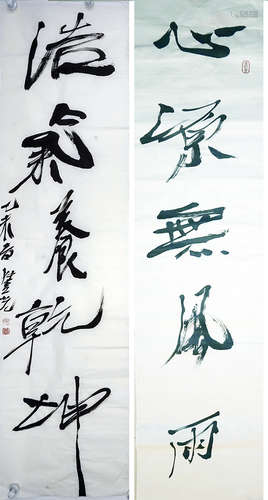 心源無風雨
浩氣養乾坤
乙未